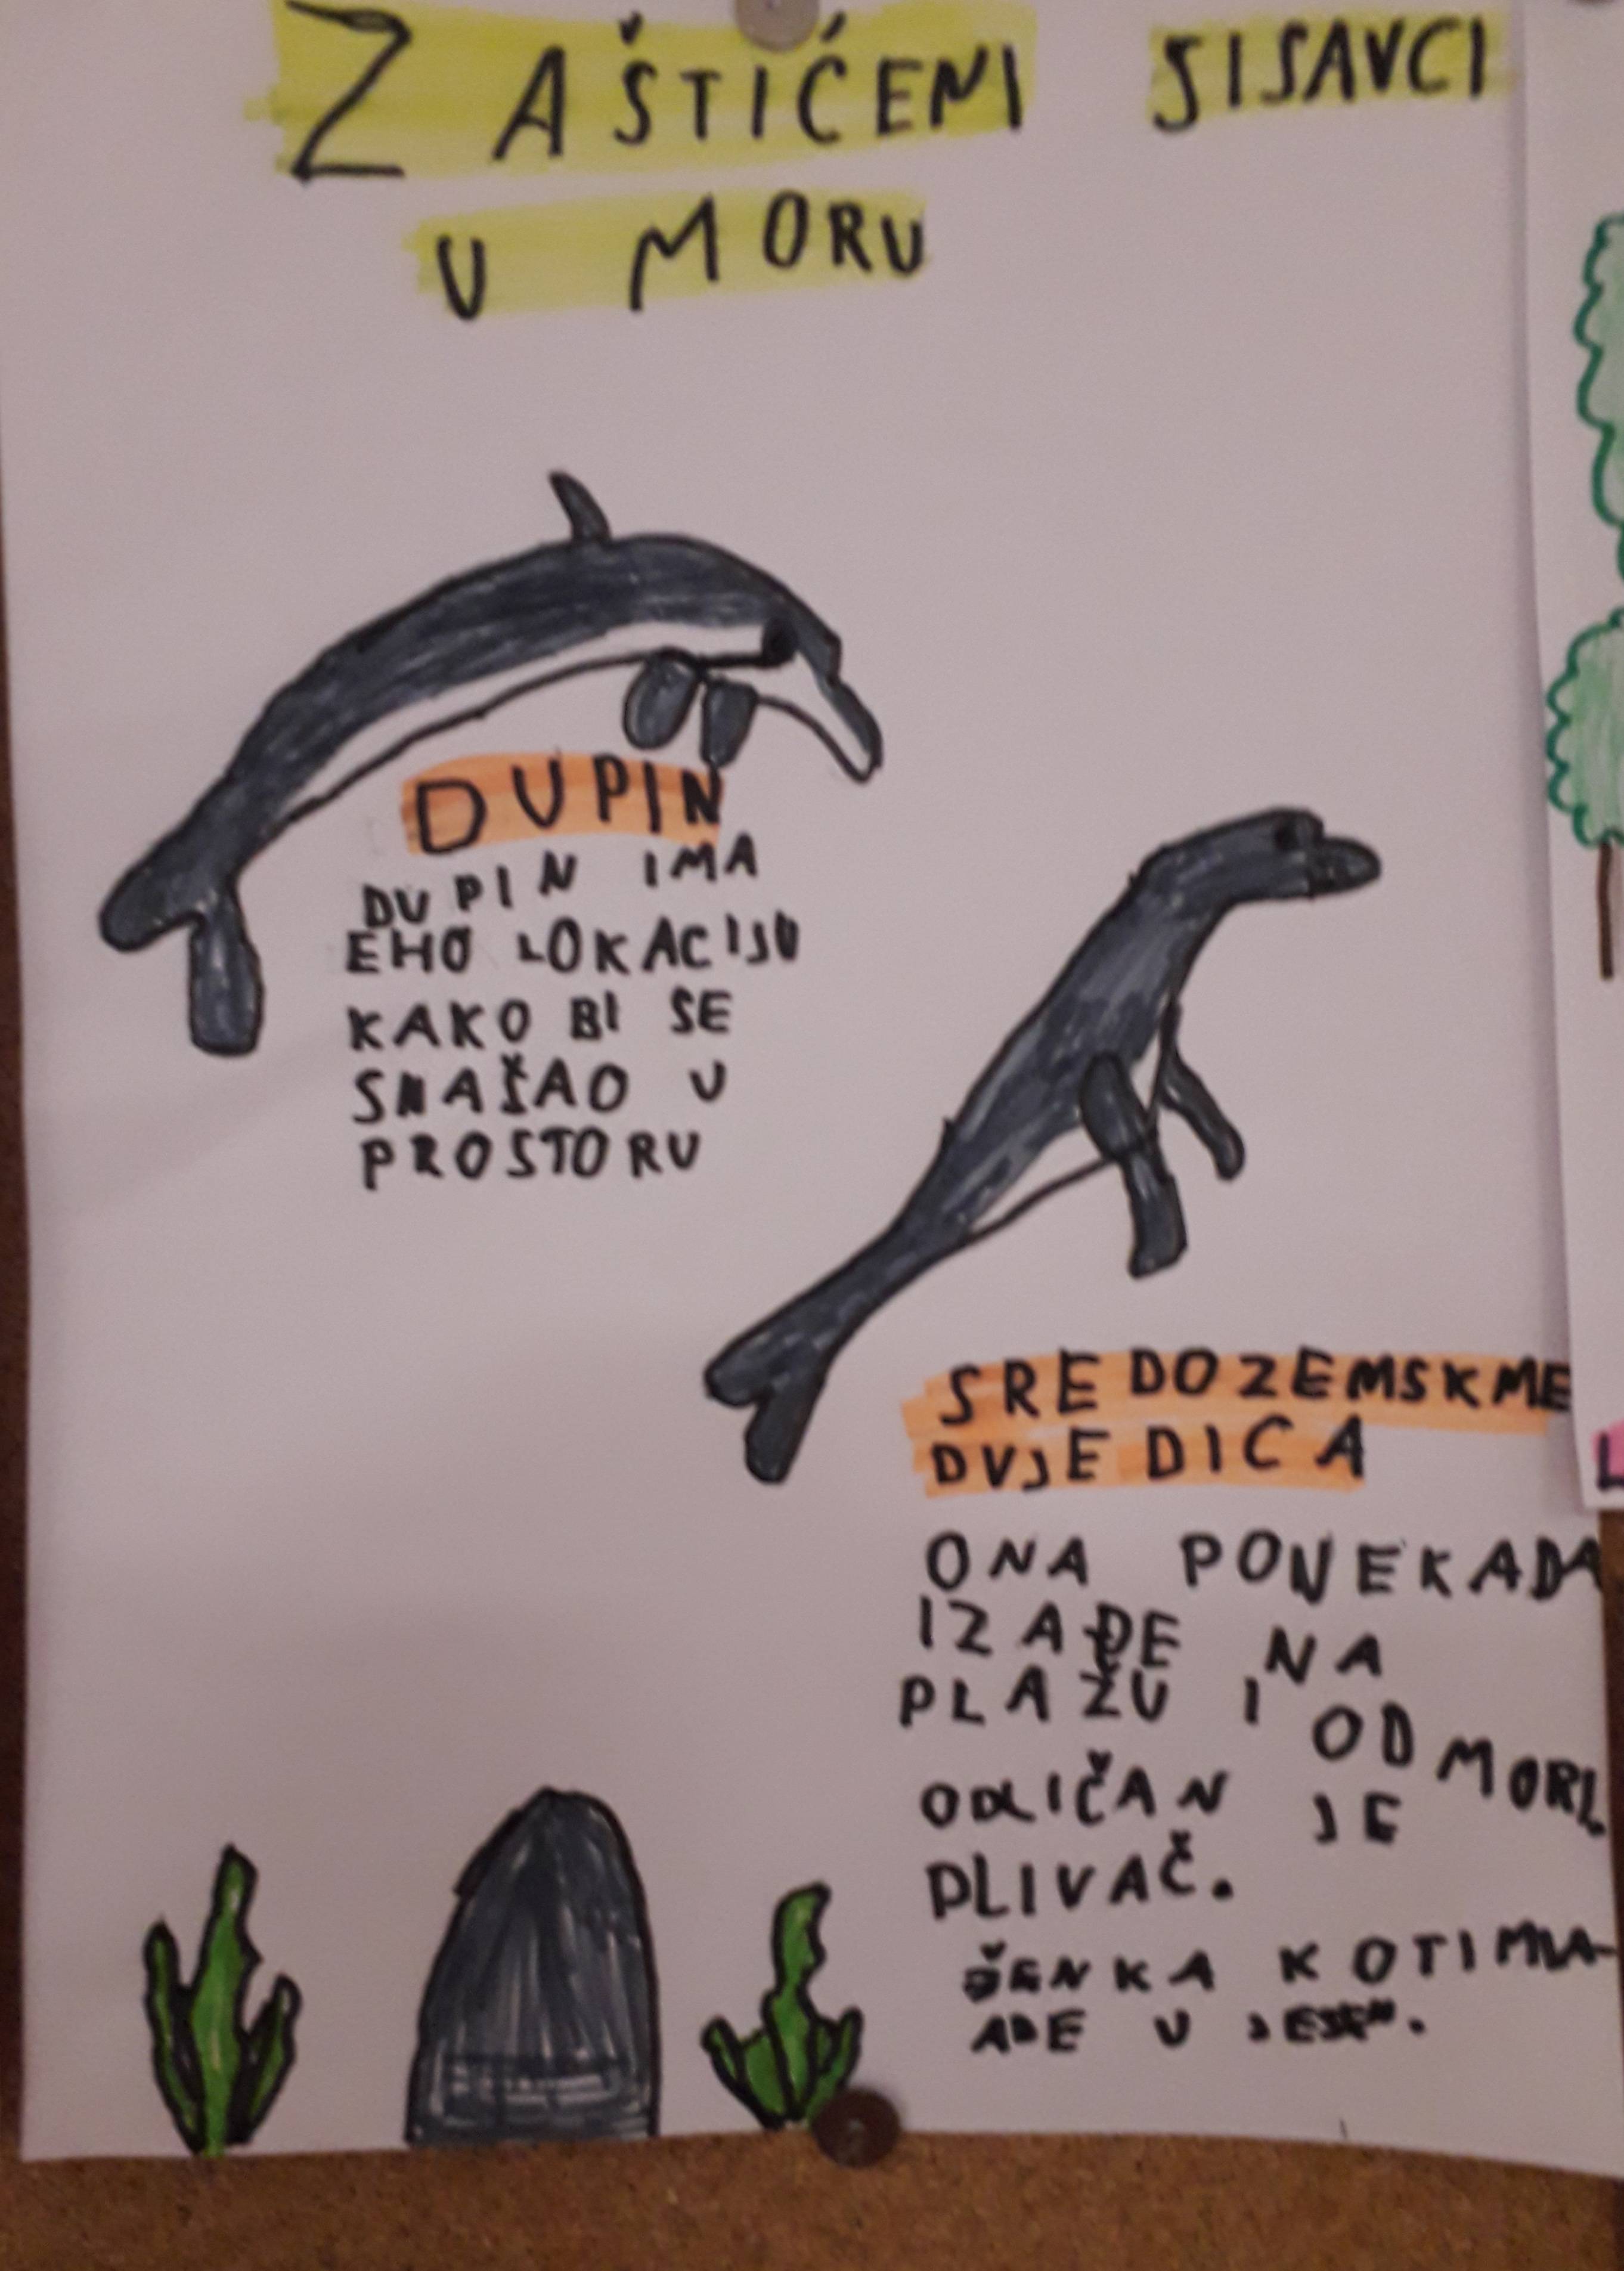 ZAŠTIĆENI SISAVCI
U MORU
DUPIN
DUPIN IMA
EHO LOKACIJU
KAKO BI SE
SNAŠAO U
PROSTORU
SREDOZEMSKME
DVJEDICA
ONA PONEKADA
IZAĐE NA
PLAŽU I ODMORI
ODLIČAN JE
PLIVAČ.
ŽENKA KOTI MLA-
ADE U JESEN.
L